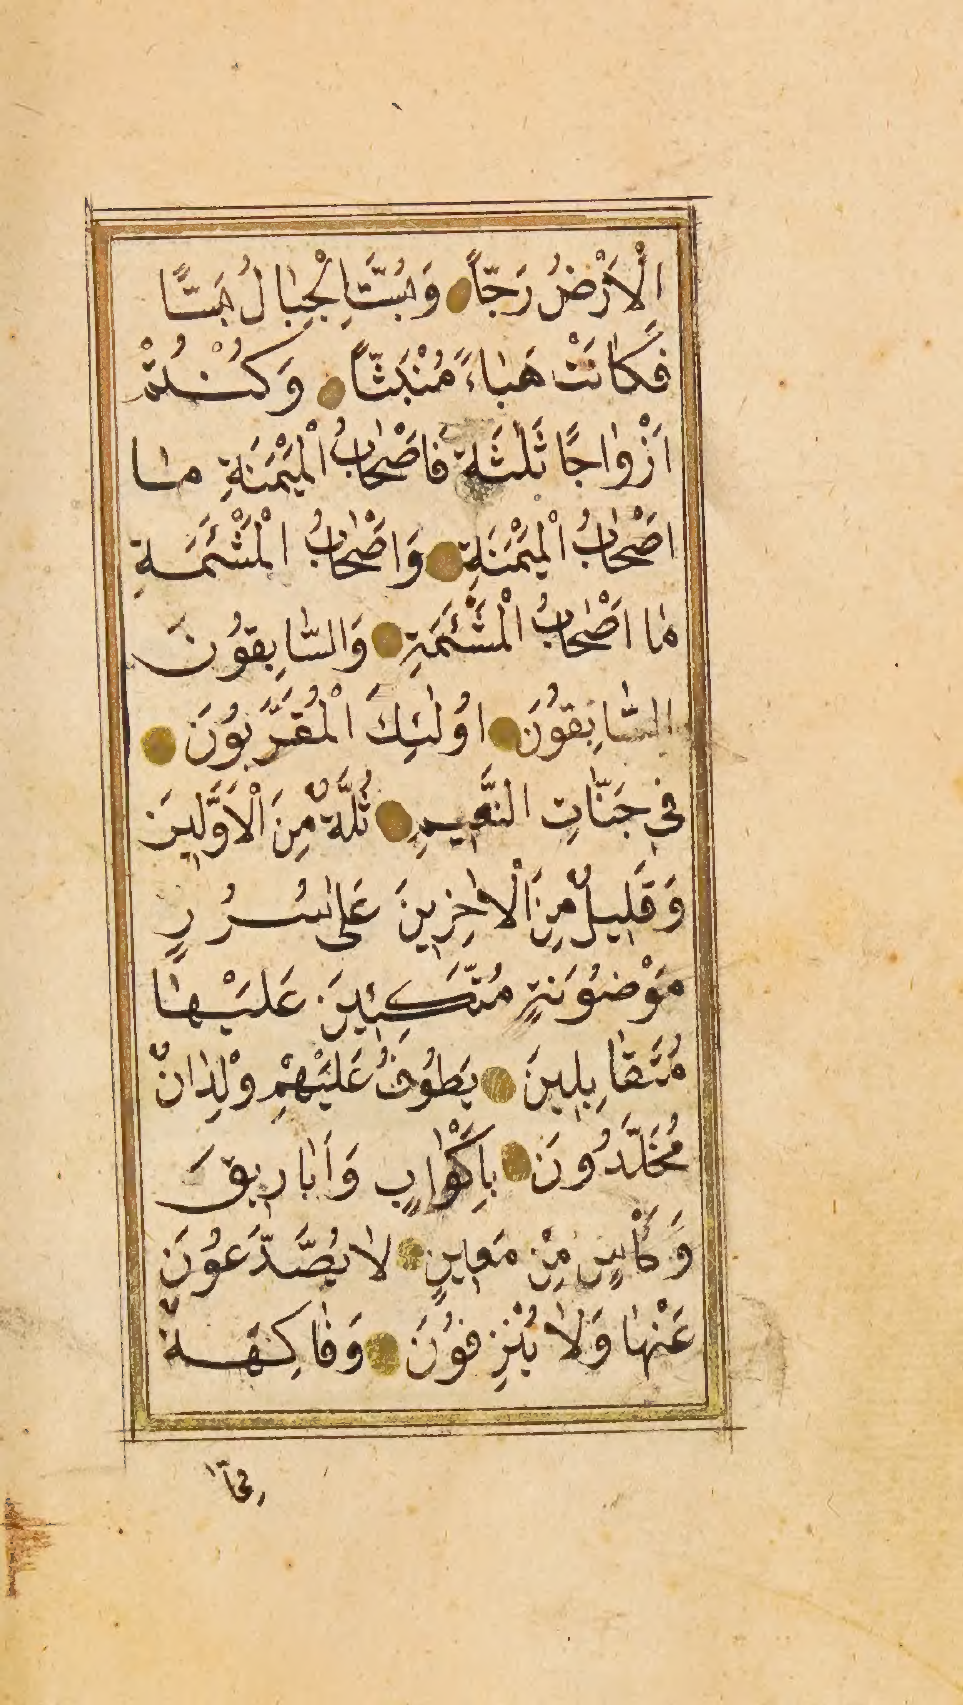 الْاَرْضُ رَجّاً وَبُسَّتِ الْجِبَالُ بَسًّا
فَكَانَتْ هَبَاءً مُنْبَثّاً وَكُنْتُمْ
اَزْوَاجًا ثَلٰثَةً فَاَصْحَابُ الْمَيْمَنَةِ مَا
اَصْحَابُ الْمَيْمَنَةِ وَاَصْحَابُ الْمَشْئَمَةِ
مَا اَصْحَابُ الْمَشْئَمَةِ وَالسَّابِقُونَ
السَّابِقُونَ اُولٰئِكَ الْمُقَرَّبُونَ
فِي جَنَّاتِ النَّعِيمِ ثُلَّةٌ مِنَ الْاَوَّلِينَ
وَقَلِيلٌ مِنَ الْاٰخِرِينَ عَلٰى سُرُرٍ
مَوْضُونَةٍ مُتَّكِئِينَ عَلَيْهَا
مُتَقَابِلِينَ يَطُوفُ عَلَيْهِمْ وِلْدَانٌ
مُخَلَّدُونَ بِاَكْوَابٍ وَاَبَارِيقَ
وَكَاْسٍ مِنْ مَعِينٍ لَا يُصَدَّعُونَ
عَنْهَا وَلَا يُنْزِفُونَ وَفَاكِهَةٍ
مِمَّا